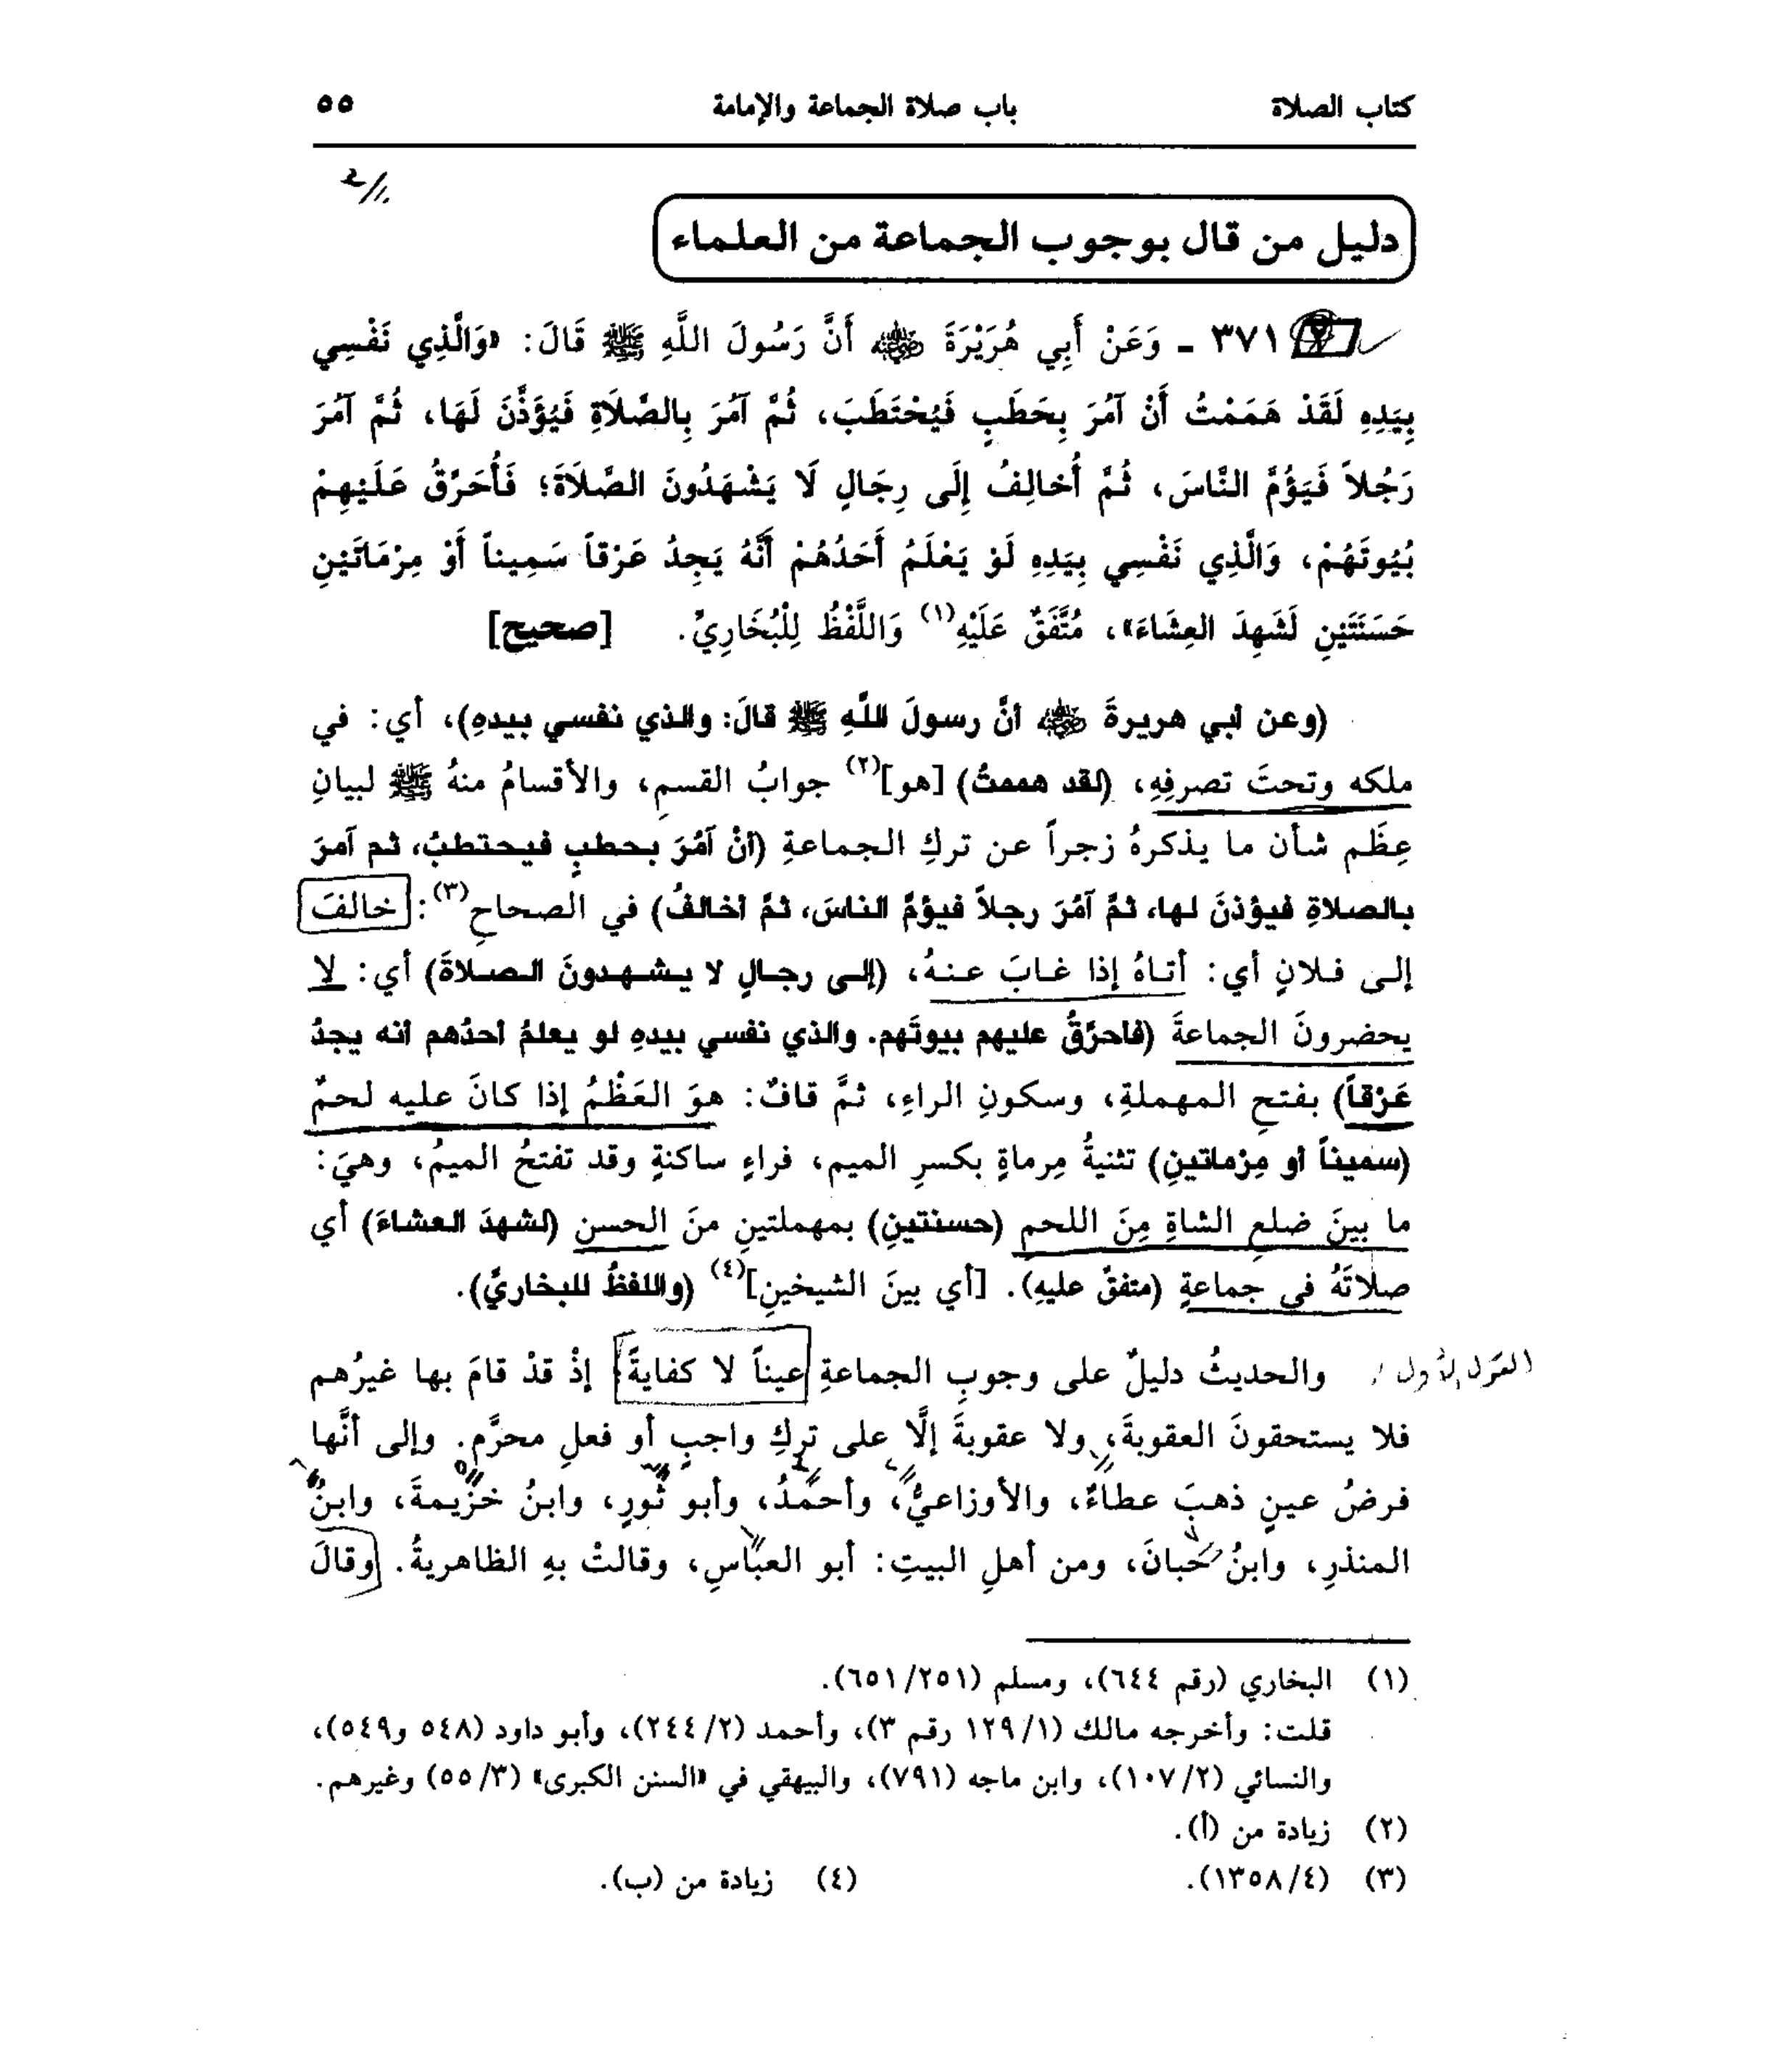 كتاب الصلاة باب صلاة الجماعة والإمامة ٥٥
دليل من قال بوجوب الجماعة من العلماء
٣٧١ - وَعَنْ أَبِي هُرَيْرَةَ ﵁ أَنَّ رَسُولَ اللَّهِ ﷺ قَالَ: «وَالَّذِي نَفْسِي
بِيَدِهِ لَقَدْ هَمَمْتُ أَنْ آمُرَ بِحَطَبٍ فَيُحْتَطَبَ، ثُمَّ آمُرَ بِالصَّلَاةِ فَيُؤَذَّنَ لَهَا، ثُمَّ آمُرَ
رَجُلاً فَيَؤُمَّ النَّاسَ، ثُمَّ أُخالِفُ إِلَى رِجَالٍ لَا يَشْهَدُونَ الصَّلَاةَ؛ فَأُحَرِّقُ عَلَيْهِمْ
بُيُوتَهُمْ، وَالَّذِي نَفْسِي بِيَدِهِ لَوْ يَعْلَمُ أَحَدُهُمْ أَنَّهُ يَجِدُ عَرْقاً سَمِيناً أَوْ مِرْمَاتَيْنِ
حَسَنَتَيْنِ لَشَهِدَ العِشَاءَ»، مُتَّفَقٌ عَلَيْهِ(١) وَاللَّفْظُ لِلْبُخَارِيِّ. [صحيح]
(وعن أبي هريرةَ ﵁ أنَّ رسولَ اللَّهِ ﷺ قالَ: والذي نفسي بيدهِ)، أي: في
ملكه وتحتَ تصرفِهِ، (لقد هممتُ) [هو](٢) جوابُ القسمِ، والأقسامُ منهُ ﷺ لبيانِ
عِظَمِ شأن ما يذكرهُ زجراً عن تركِ الجماعةِ (أنْ آمُرَ بحطبٍ فيحتطبُ، ثم آمرَ
بالصلاةِ فيؤذنَ لها، ثمَّ آمُرَ رجلاً فيؤمَّ الناسَ، ثمَّ أخالفُ) في الصحاحِ(٣): خالفَ
إلى فلانٍ أي: أتاهُ إذا غابَ عنهُ، (إلى رجالٍ لا يشهدونَ الصلاةَ) أي: لا
يحضرونَ الجماعةَ (فأحرِّقُ عليهم بيوتَهم. والذي نفسي بيدهِ لو يعلمُ أحدُهم أنه يجدُ
عَرْقاً) بفتحِ المهملةِ، وسكونِ الراءِ، ثمَّ قافٌ: هوَ العَظْمُ إذا كانَ عليه لحمٌ
(سميناً أو مِرْماتينِ) تثنيةُ مِرماةٍ بكسرِ الميم، فراءٍ ساكنةٍ وقد تفتحُ الميمُ، وهيَ:
ما بينَ ضلعِ الشاةِ مِنَ اللحم (حسنتينِ) بمهملتينِ منَ الحسن (لشهدَ العشاءَ) أي
صلاتَهُ في جماعةٍ (متفقٌ عليهِ). [أي بينَ الشيخينِ](٤) (واللفظُ للبخاريِّ).
القول الأول / والحديثُ دليلٌ على وجوبِ الجماعةِ عيناً لا كفايةً، إذْ قدْ قامَ بها غيرُهم
فلا يستحقونَ العقوبةَ، ولا عقوبةَ إلَّا على تركِ واجبٍ أو فعلِ محرَّمٍ. وإلى أنَّها
فرضُ عينٍ ذهبَ عطاءٌ، والأوزاعيُّ، وأحمدُ، وأبو ثورٍ، وابنُ خزيمةَ، وابنُ
المنذرِ، وابنُ حبانَ، ومن أهلِ البيتِ: أبو العبَّاسِ، وقالتْ بهِ الظاهريةُ. وقالَ
(١) البخاري (رقم ٦٤٤)، ومسلم (٦٥١/٢٥١).
قلت: وأخرجه مالك (١٢٩/١ رقم ٣)، وأحمد (٢٤٤/٢)، وأبو داود (٥٤٨ و٥٤٩)،
والنسائي (١٠٧/٢)، وابن ماجه (٧٩١)، والبيهقي في «السنن الكبرى» (٥٥/٣) وغيرهم.
(٢) زيادة من (أ).
(٣) (١٣٥٨/٤). (٤) زيادة من (ب).